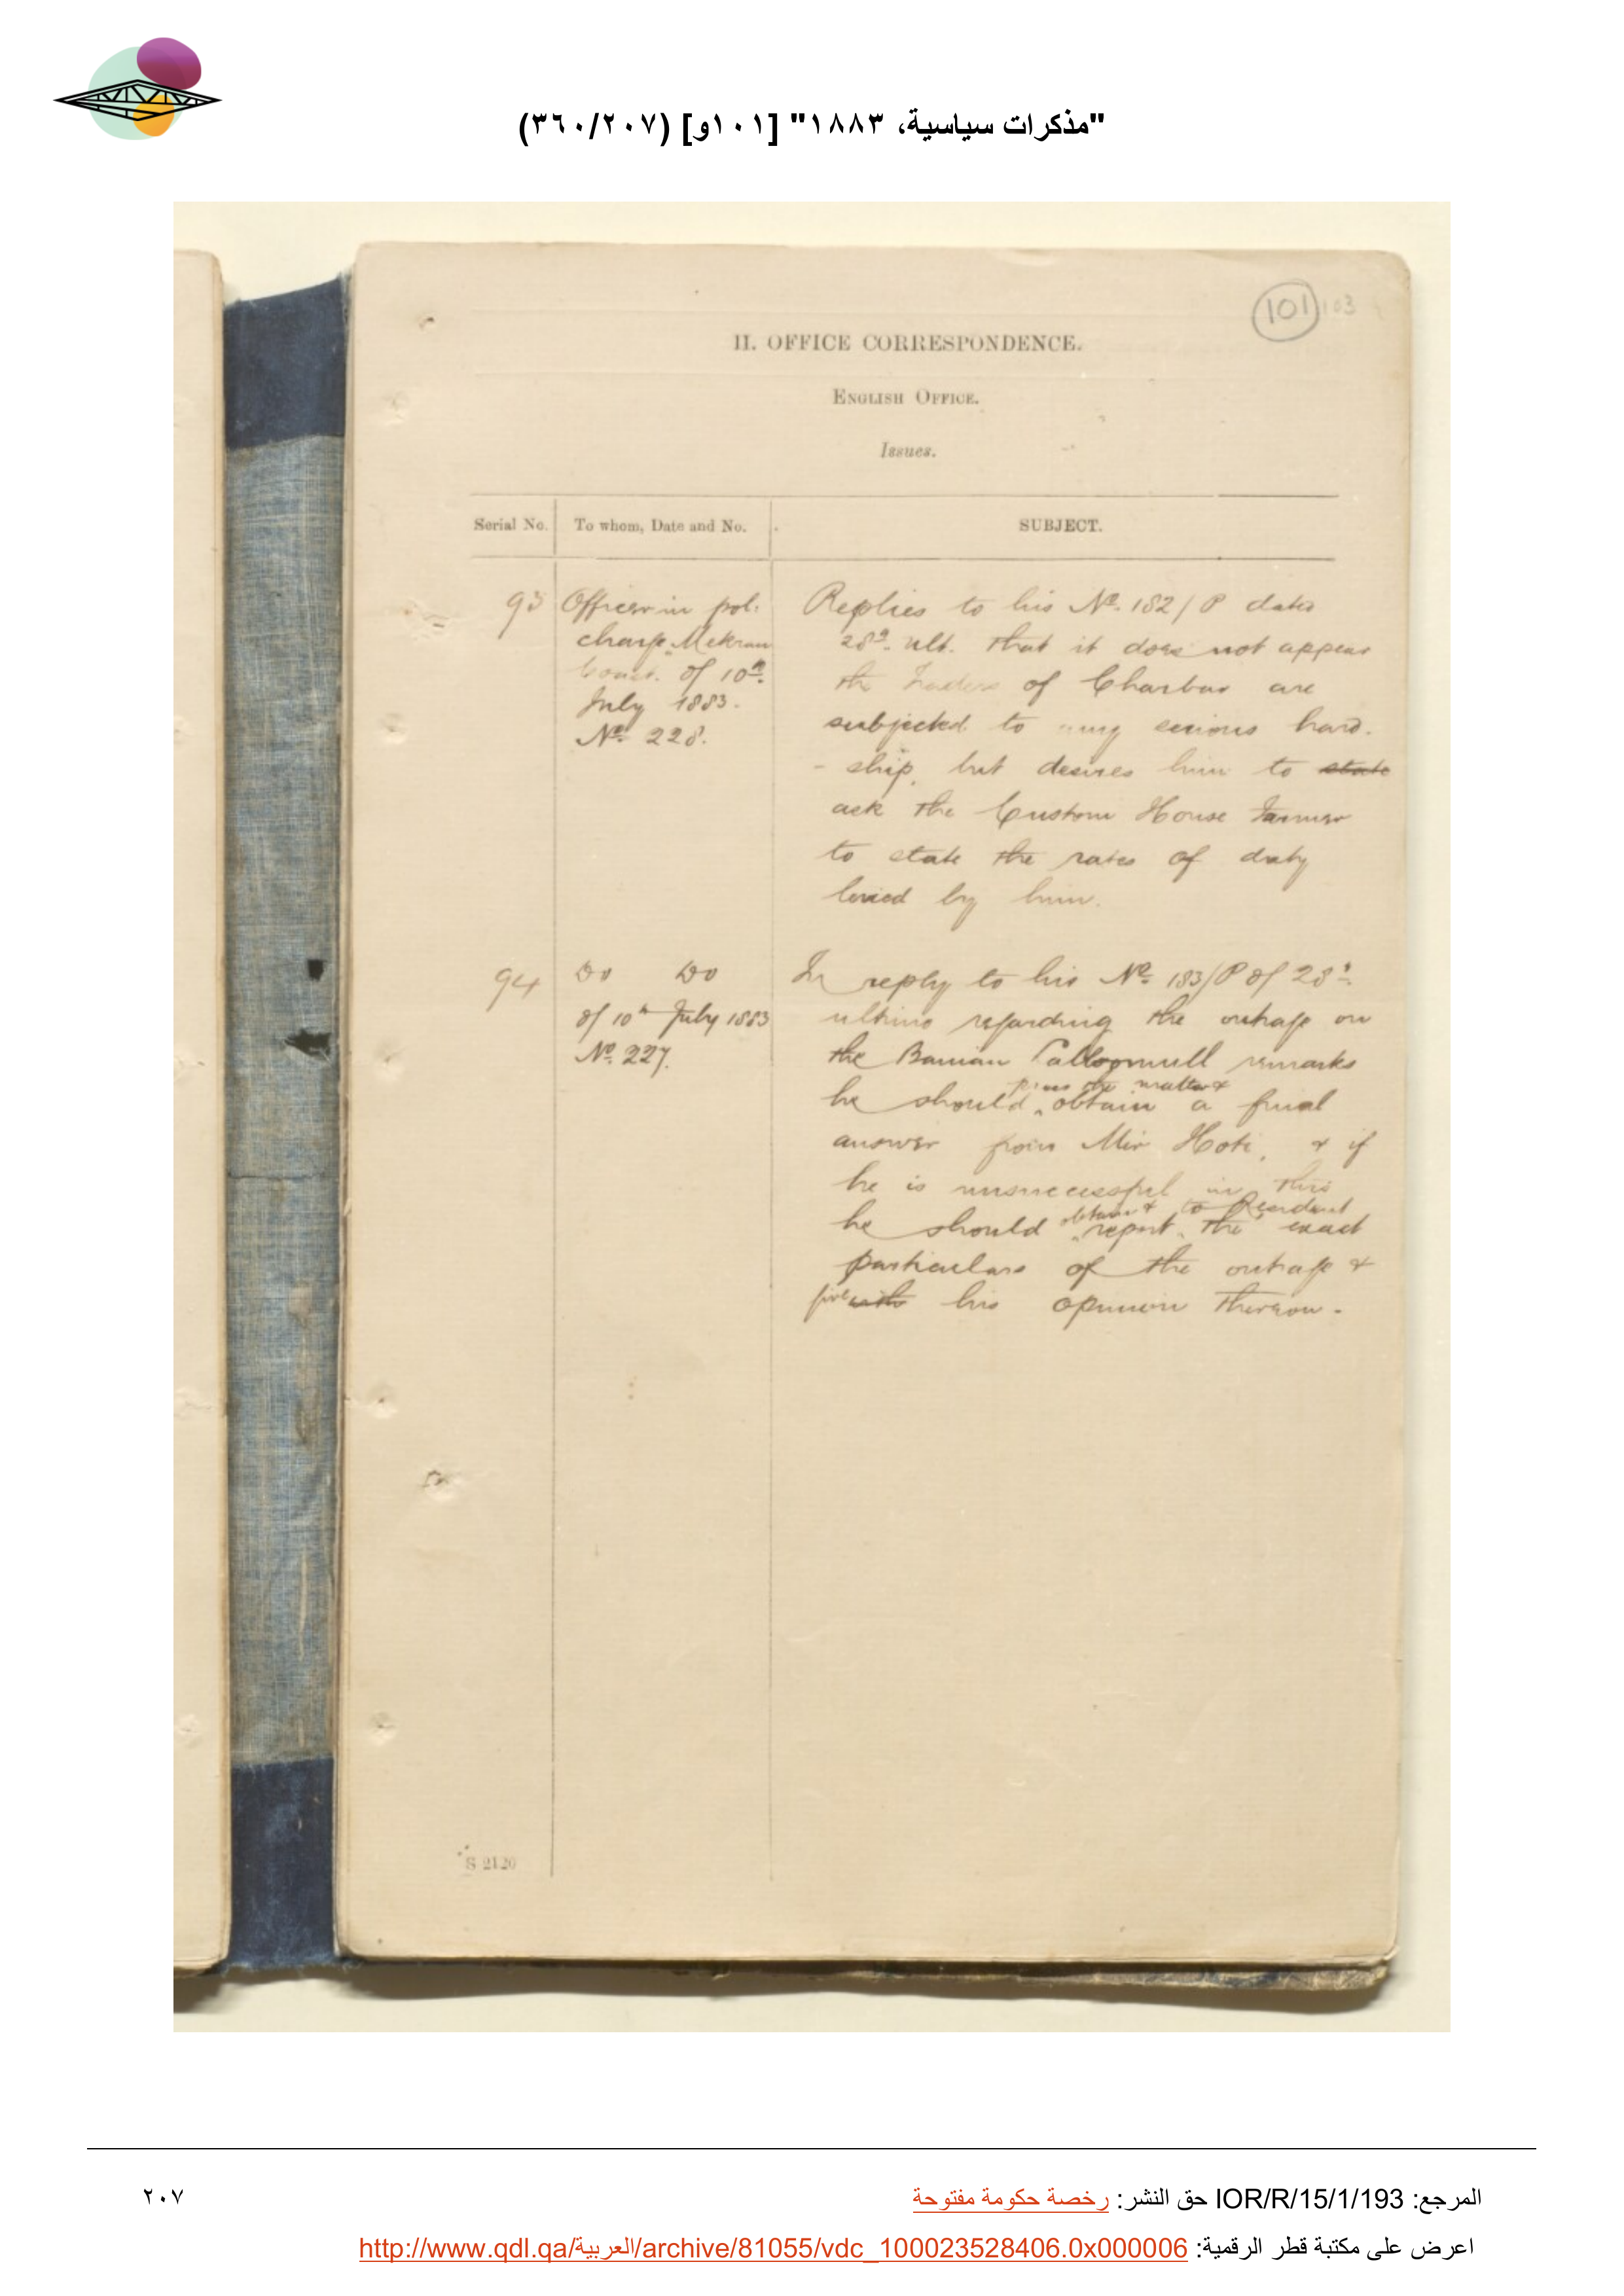 "مذكرات سياسية، ١٨٨٣" [١٠١و] (٣٦٠/٢٠٧)
101 103
II. OFFICE CORRESPONDENCE.
ENGLISH OFFICE.
Issues.
Serial No. To whom, Date and No. SUBJECT.
93 Officer in pol:
charge Mekran
Coast. of 10th
July 1883.
No. 228.
Replies to his No. 182/P dated
28th ult. that it does not appear
the traders of Charbar are
subjected to any serious hard-
-ship, but desires him to state
ask the Custom House Farmer
to state the rates of duty
levied by him.
94 Do Do
of 10th July 1883
No. 227.
In reply to his No. 183/P of 28th
ultimo regarding the outrage on
the Banian remarks
press the matter &
he should obtain a final
answer from Mir Hoti, & if
he is unsuccessful in this
obtain & to Resident
he should report the exact
particulars of the outrage &
give with his opinion thereon.
S 2120
المرجع: IOR/R/15/1/193 حق النشر: رخصة حكومة مفتوحة
٢٠٧
اعرض على مكتبة قطر الرقمية: http://www.qdl.qa/العربية/archive/81055/vdc_100023528406.0x000006